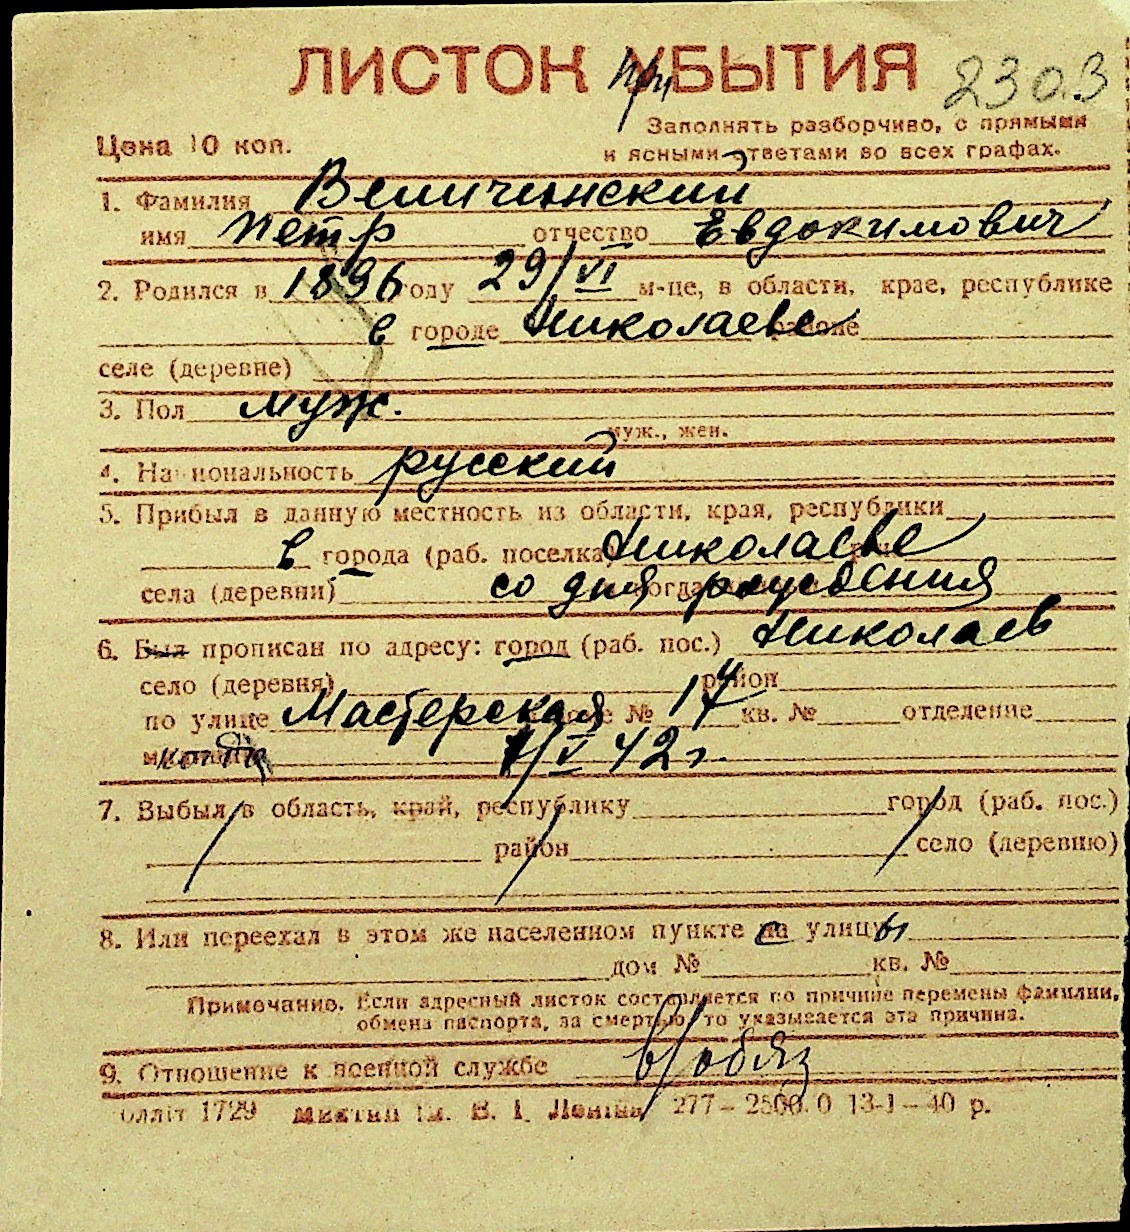 ЛИСТОК при УБЫТИЯ 2303
Цена 10 коп. Заполнять разборчиво, с прямыми
и ясными ответами во всех графах.
1. Фамилия Величинский
имя Петр отчество Евдокимович
2. Родился в 1896 году 29/VI м-це, в области, крае, республике
в городе Николаеве районе
селе (деревне)
3. Пол муж.
муж., жен.
4. Национальность русский
5. Прибыл в данную местность из области, края, республики
в города (раб. поселка) Николаеве
села (деревни) со дня рождения когда
6. Был прописан по адресу: город (раб. пос.) Николаев
село (деревня) район
по улице Мастерская № 17 кв. № отделение
1/V 42 г.
7. Выбыл в область, край, республику город (раб. пос.)
район село (деревню)
8. Или переехал в этом же населенном пункте на с улицу ы
дом № кв. №
Примечание. Если адресный листок составляется по причине перемены фамилии,
обмена паспорта, за смертью, то указывается эта причина.
9. Отношение к военной службе в/обяз
Олліт 1729 ім. В. І. Леніна 277–2500.0 13-1–40 р.